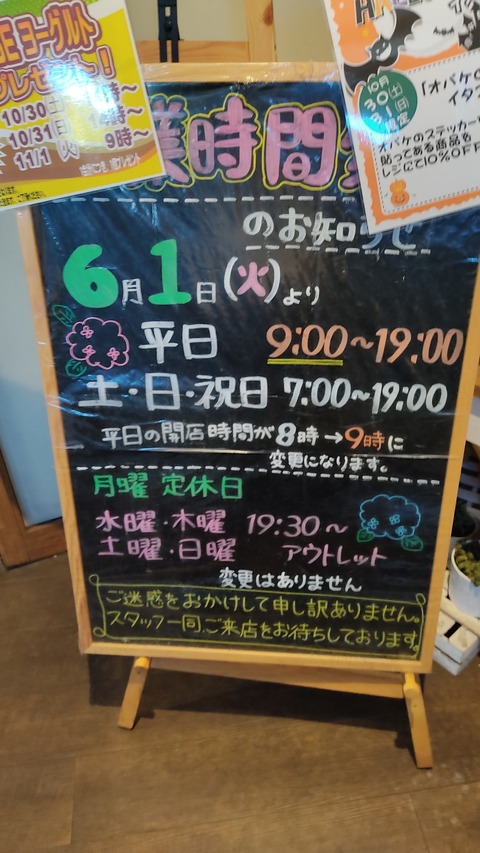 ヨーグルト
プレゼント！
10/30(土)
10/31(日)
11/1(火) 9時〜
10月
30(土)
31(日)
限定
「オバケの
イタズ
オバケのステッカー
貼ってある商品を
レジにて10%OFF
業時間
のお知らせ
6月1日(火)より
平日 9:00〜19:00
土・日・祝日 7:00〜19:00
平日の開店時間が8時→9時に
変更になります。
月曜 定休日
水曜・木曜 19:30〜
土曜・日曜 アウトレット
変更はありません
ご迷惑をおかけして申し訳ありません。
スタッフ一同ご来店をお待ちしております。